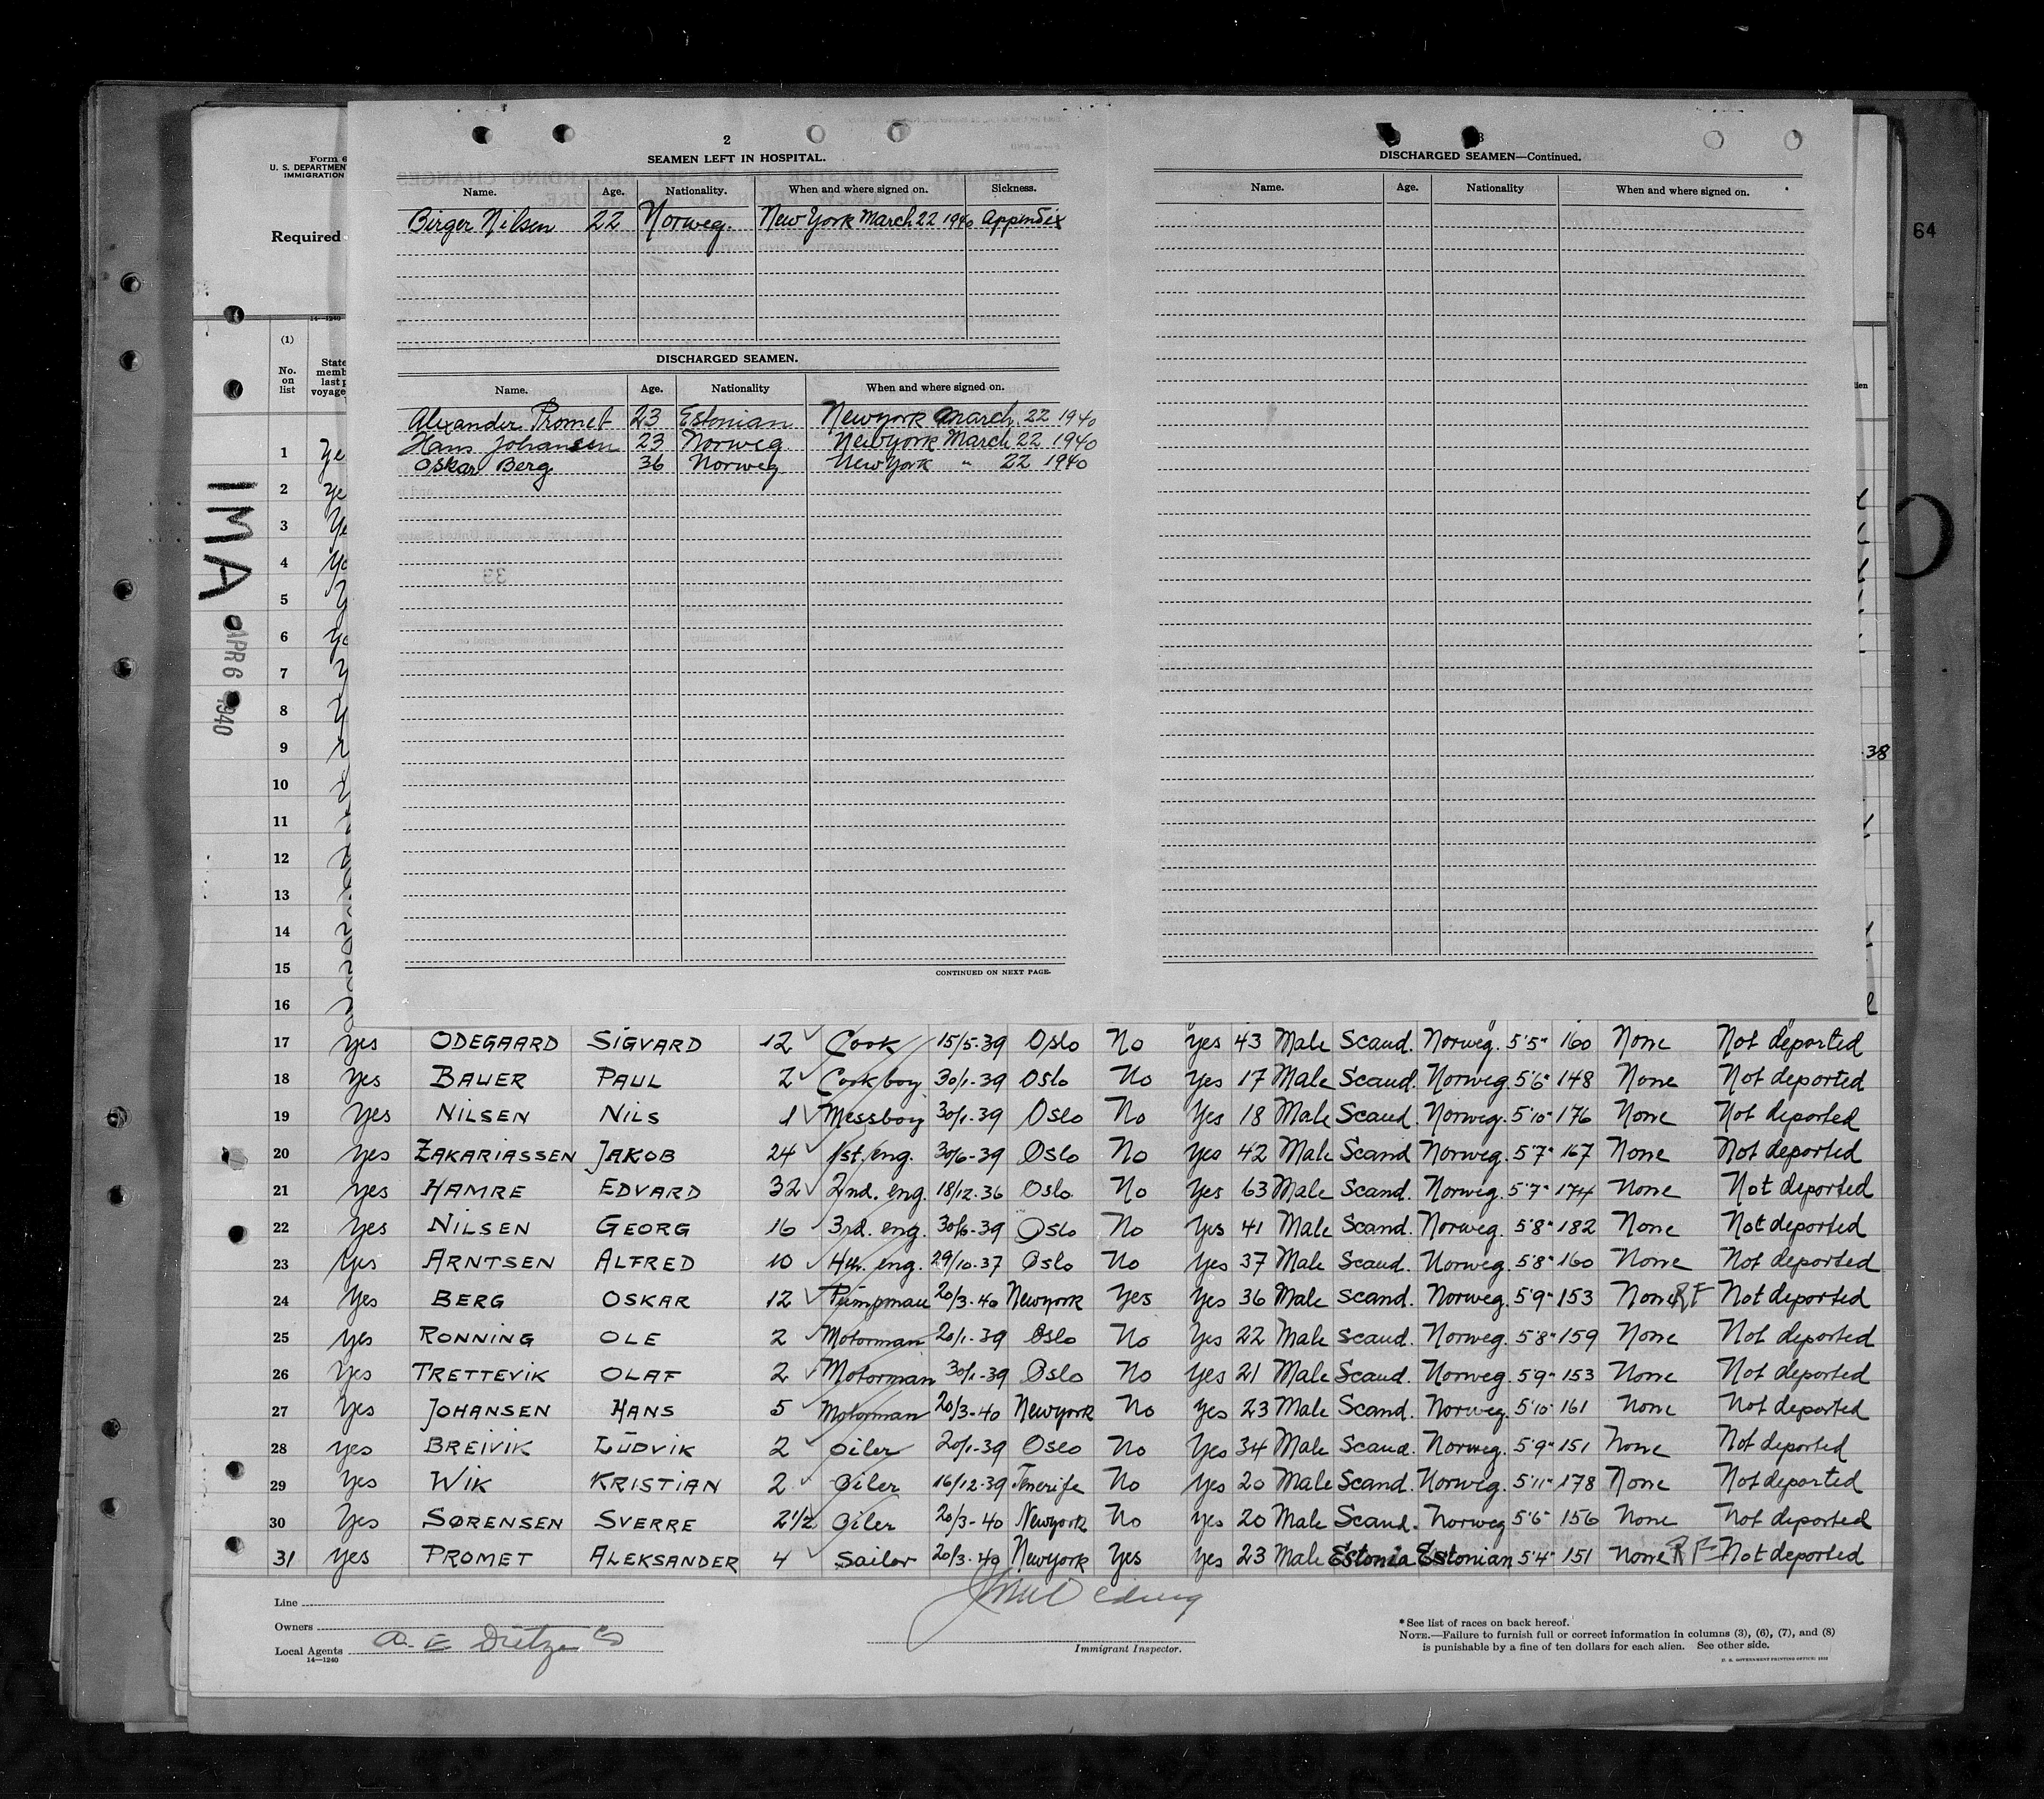 2
SEAMEN LEFT IN HOSPITAL.
Name. Age. Nationality. When and where signed on. Sickness.
Birger Nilsen 22 Norweg. New York March 22 1940 Appendix
DISCHARGED SEAMEN.
Name. Age. Nationality When and where signed on.
Alexander Promet 23 Estonian Newyork March 22 1940
Hans Johansen 23 Norweg Newyork March 22 1940
Oskar Berg 36 Norweg New York " 22 1940
CONTINUED ON NEXT PAGE.
3
DISCHARGED SEAMEN—Continued.
Name. Age. Nationality When and where signed on.
64
Form 6
U. S. DEPARTMENT
IMMIGRATION
Required
14—1240
(1)
No. on list
State
memb
last p
voyage
IMA
APR 6 1940
1 Ye
2 Ye
3 Ye
4
5
6
7
8
9 38
10
11
12
13
14
15
16
17 Yes ODEGAARD SIGVARD 12 Cook 15/5-39 Oslo No Yes 43 Male Scand. Norweg. 5'5" 160 None Not deported
18 Yes BAUER PAUL 2 Cook boy 30/1-39 Oslo No Yes 17 Male Scand. Norweg. 5'6" 148 None Not deported
19 Yes NILSEN NILS 1 Messboy 30/1-39 Oslo No Yes 18 Male Scand. Norweg. 5'10" 176 None Not deported
20 Yes ZAKARIASSEN JAKOB 24 1st. eng. 30/6-39 Oslo No Yes 42 Male Scand Norweg. 5'7" 167 None Not deported
21 Yes HAMRE EDVARD 32 2nd. eng. 18/12-36 Oslo No Yes 63 Male Scand. Norweg. 5'7" 174 None Not deported
22 Yes NILSEN GEORG 16 3rd. eng. 30/6-39 Oslo No Yes 41 Male Scand. Norweg. 5'8" 182 None Not deported
23 Yes ARNTSEN ALFRED 10 4th. eng. 29/10-37 Oslo No Yes 37 Male Scand. Norweg. 5'8" 160 None Not deported
24 Yes BERG OSKAR 12 Pumpman 20/3-40 Newyork Yes Yes 36 Male Scand. Norweg. 5'9" 153 None RF Not deported
25 Yes RONNING OLE 2 Motorman 20/1-39 Oslo No Yes 22 Male Scand. Norweg. 5'8" 159 None Not deported
26 Yes TRETTEVIK OLAF 2 Motorman 30/1-39 Oslo No Yes 21 Male Scand. Norweg. 5'9" 153 None Not deported
27 Yes JOHANSEN HANS 5 Motorman 20/3-40 Newyork No Yes 23 Male Scand. Norweg. 5'10" 161 None Not deported
28 Yes BREIVIK LUDVIK 2 Oiler 20/1-39 Oslo No Yes 34 Male Scand. Norweg. 5'9" 151 None Not deported
29 Yes WIK KRISTIAN 2 Oiler 16/12-39 Tenerife No Yes 20 Male Scand. Norweg. 5'11" 178 None Not deported
30 Yes SØRENSEN SVERRE 2 1/2 Oiler 20/3-40 Newyork No Yes 20 Male Scand. Norweg 5'6" 156 None Not deported
31 Yes PROMET ALEKSANDER 4 Sailor 20/3-40 Newyork Yes Yes 23 Male Estonia Estonian 5'4" 151 None RF Not deported
Line
Owners
Local Agents A. E Dietze Co
14—1240
Immigrant Inspector.
*See list of races on back hereof.
NOTE.—Failure to furnish full or correct information in columns (3), (6), (7), and (8)
is punishable by a fine of ten dollars for each alien. See other side.
U. S. GOVERNMENT PRINTING OFFICE: 1932